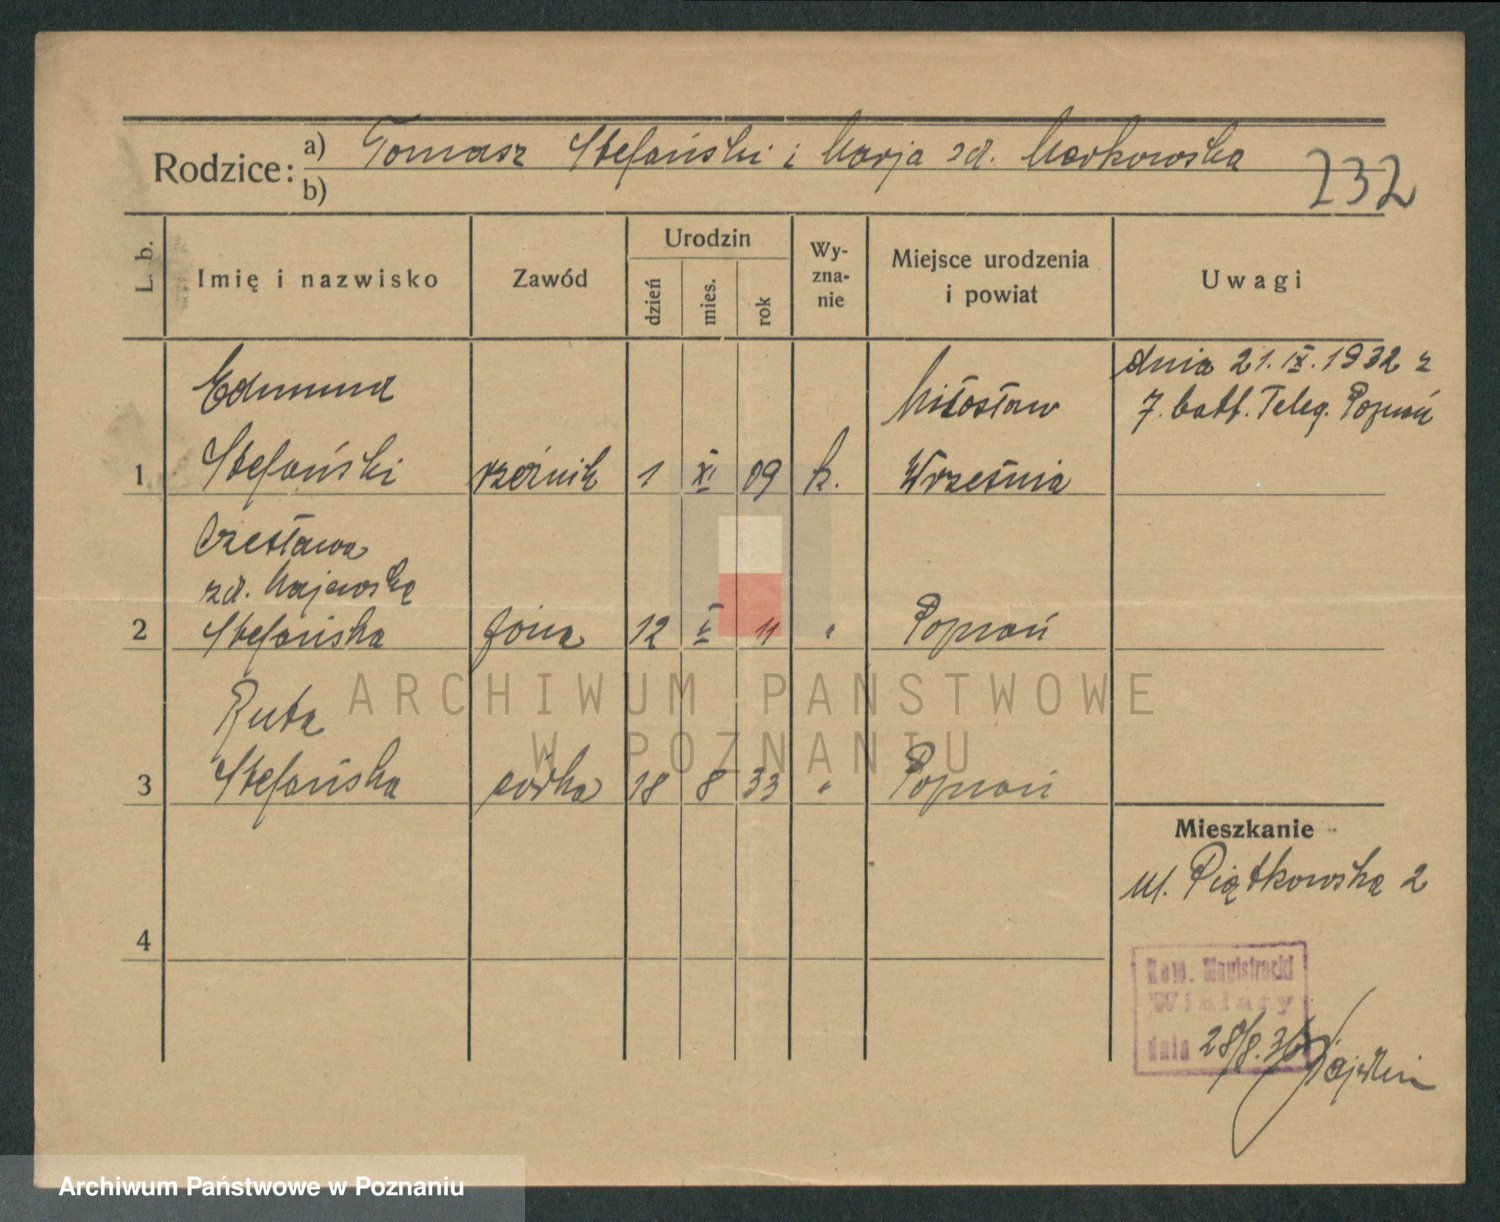 Rodzice: a) Tomasz Stefański i Marja zd. Markowska
b)
232
L. b.
Imię i nazwisko
Zawód
Urodzin
dzień
mies.
rok
Wy-
zna-
nie
Miejsce urodzenia
i powiat
Uwagi
Edmund
Miłosław
dnia 21. IX. 1932 z
7. batt. Teleg. Poznań
1 Stefański rzeźnik 1 XI 09 k. Września
Czesława
zd. Majewska
2 Stefańska żona 12 V 11 " Poznań
Ruta
3 Stefańska córka 18 8 33 " Poznań
Mieszkanie
ul. Piątkowska 2
4
Kom. Magistracki
Winiary
dnia 28/8. 36
ARCHIWUM PAŃSTWOWE
W POZNANIU
Archiwum Państwowe w Poznaniu